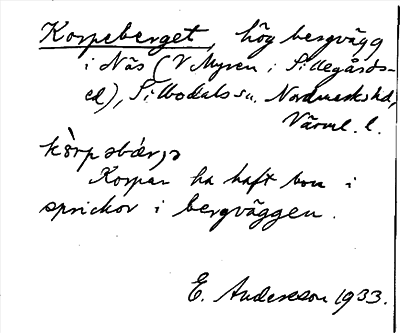 Korpeberget, hög bergvägg
i Näs (V Myren i Sillegårds-
ed), Silbodals sn. Nordmarks hd,
Värml. l.
kòrpəbær,jə
Korpar ha haft bon i
sprickor i bergväggen.
E. Andersson 1933.